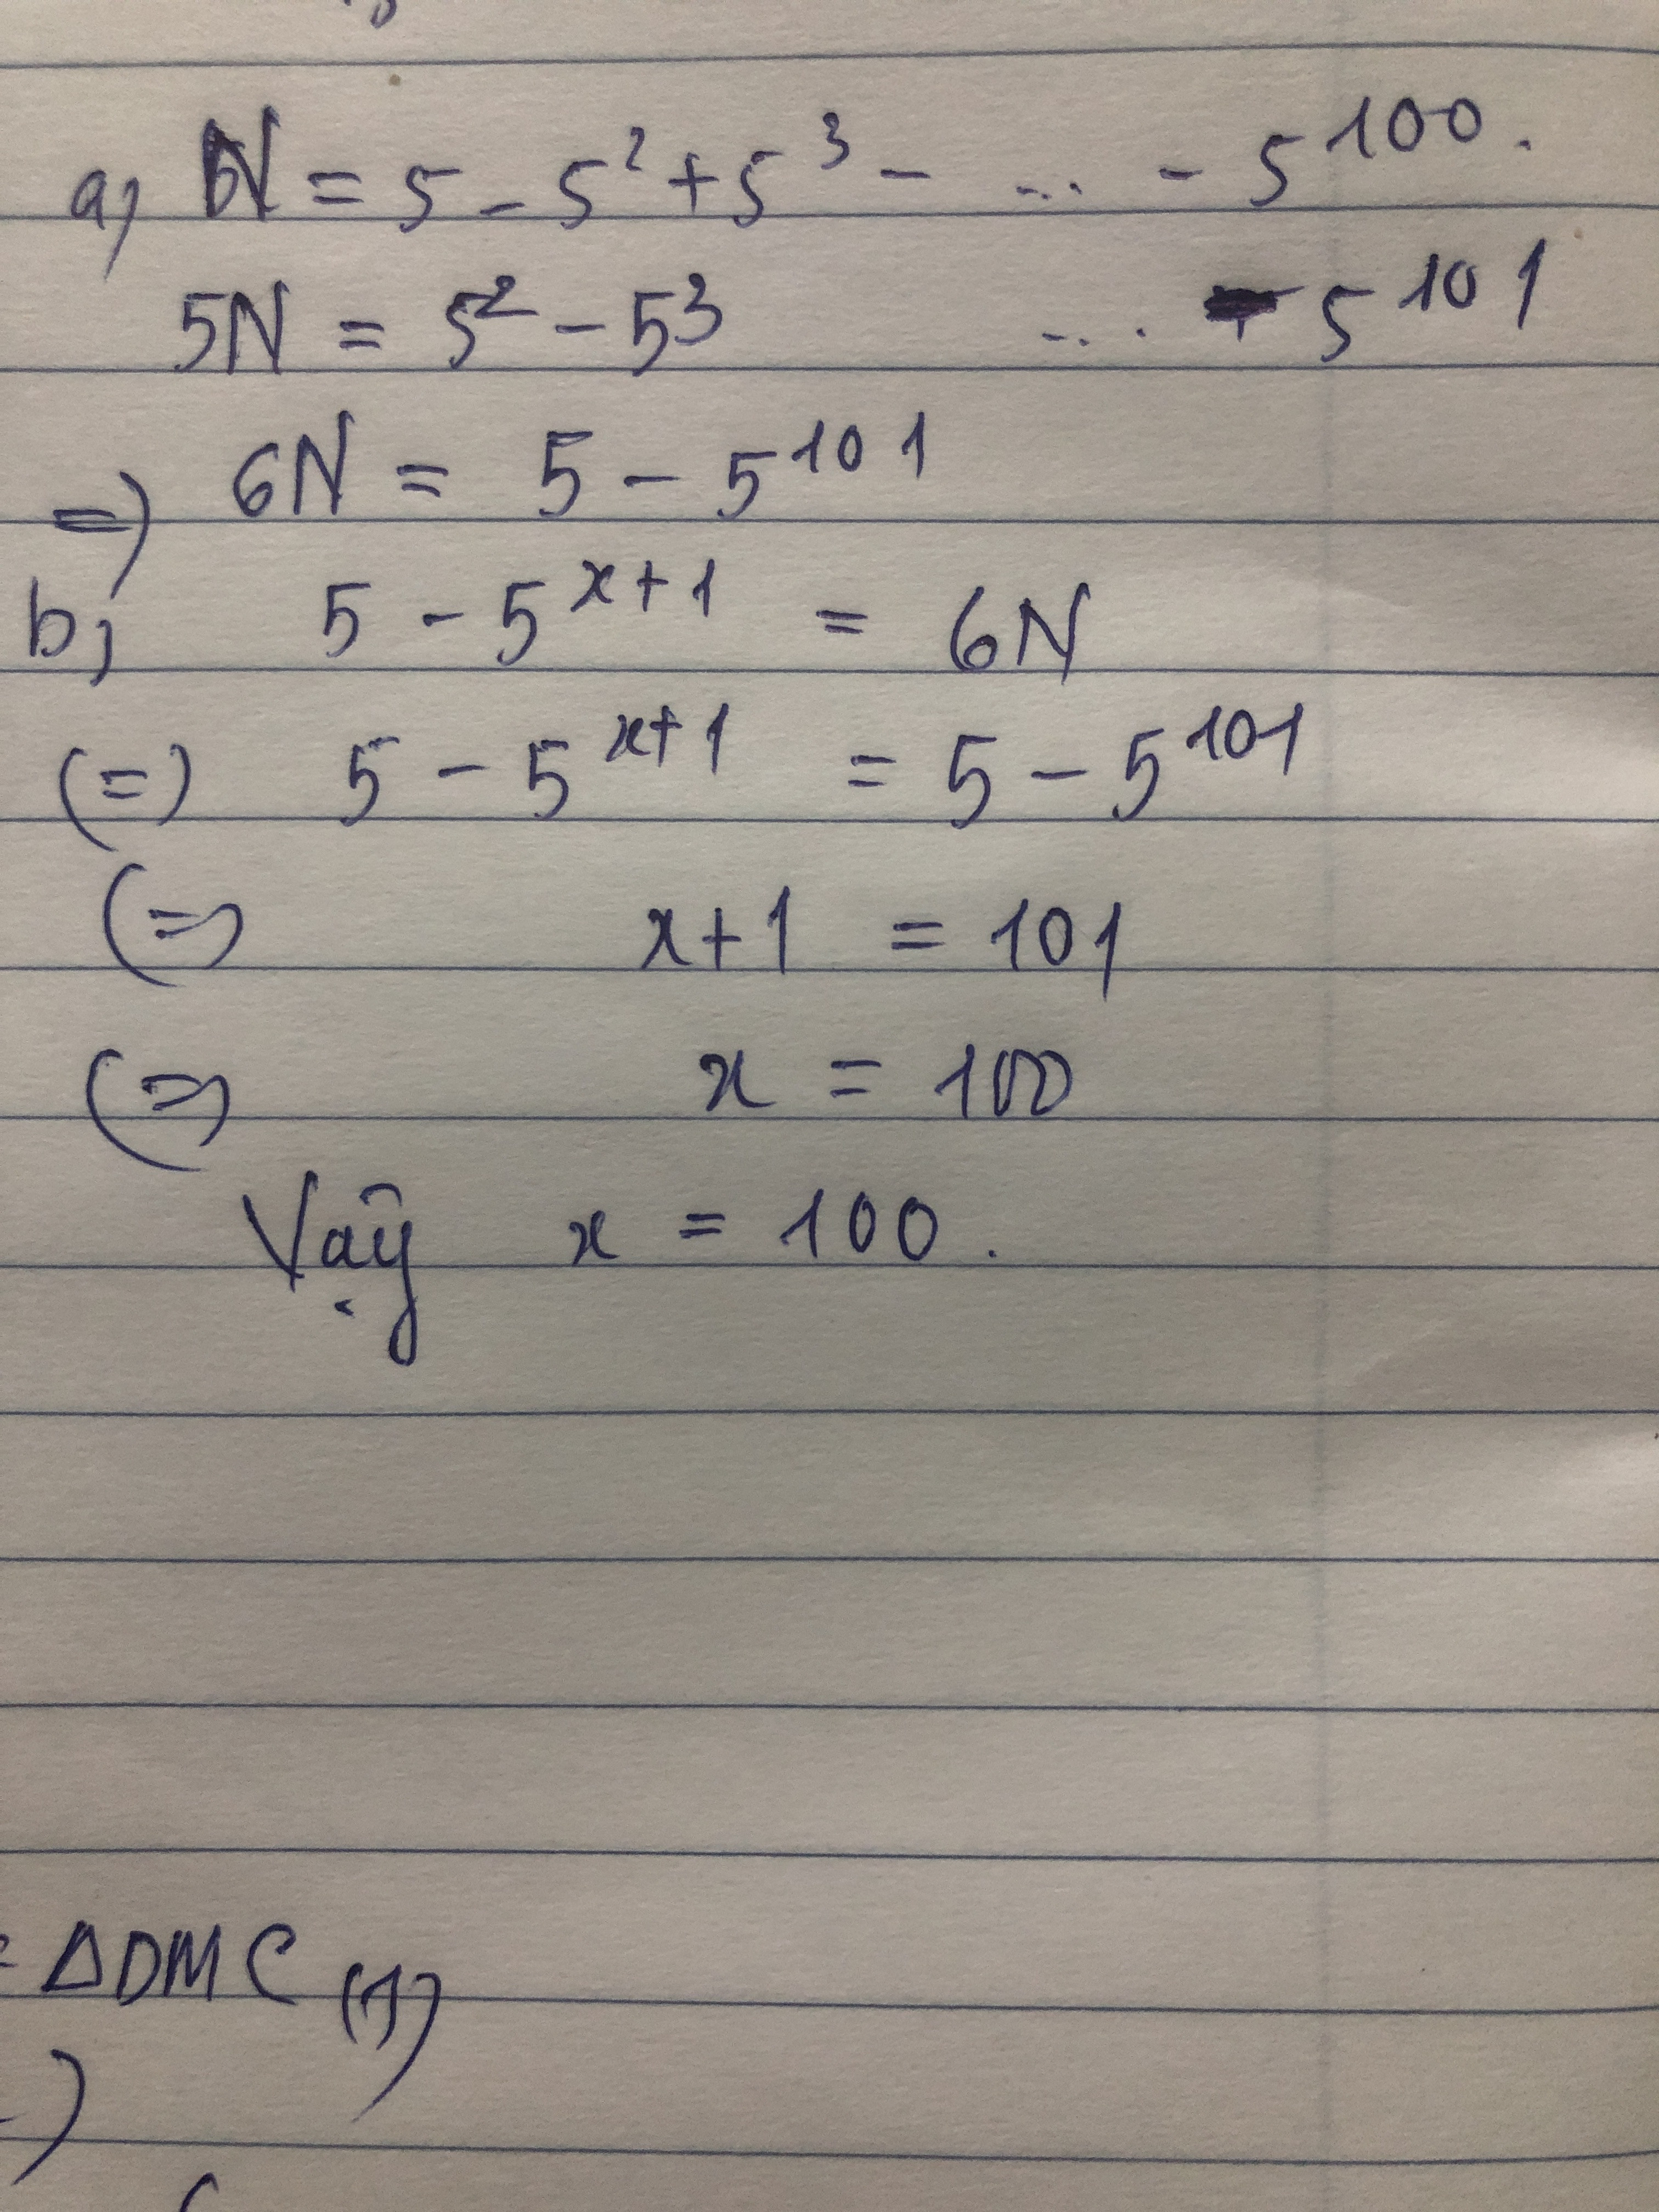 a, N = 5 - 5² + 5³ - ... - 5¹⁰⁰.
5N = 5² - 5³ ... - 5¹⁰¹
=) 6N = 5 - 5¹⁰¹
b, 5 - 5ˣ⁺¹ = 6N
(=) 5 - 5ˣ⁺¹ = 5 - 5¹⁰¹
(=) x+1 = 101
(=) x = 100
Vậy x = 100.
= ΔDMC (1)
)